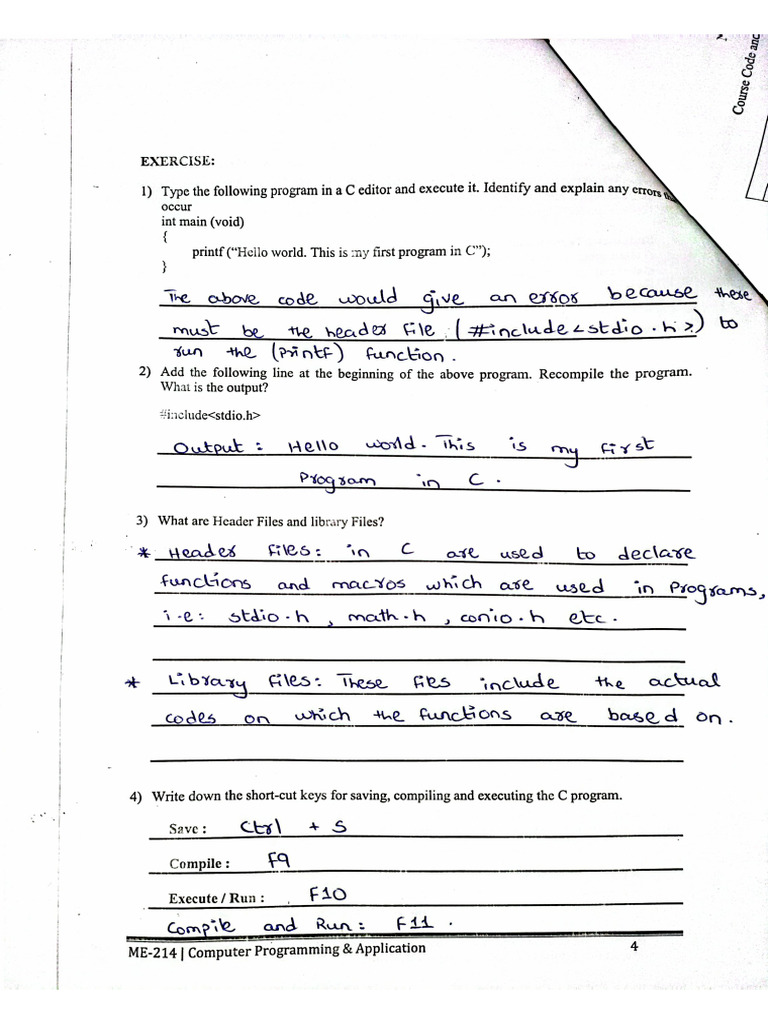 Course Code and
EXERCISE:
1) Type the following program in a C editor and execute it. Identify and explain any errors
occur
int main (void)
{
printf (“Hello world. This is my first program in C”);
}
The above code would give an error because there
must be the header file (#include<stdio.h>) to
run the (printf) function.
2) Add the following line at the beginning of the above program. Recompile the program.
What is the output?
#include<stdio.h>
Output : Hello world. This is my first
Program in C.
3) What are Header Files and library Files?
* Header files: in C are used to declare
functions and macros which are used in Programs,
i.e: stdio.h, math.h, conio.h etc.
* Library files: These files include the actual
codes on which the functions are based on.
4) Write down the short-cut keys for saving, compiling and executing the C program.
Save : Ctrl + S
Compile : F9
Execute / Run : F10
Compile and Run: F11.
ME-214 | Computer Programming & Application 4